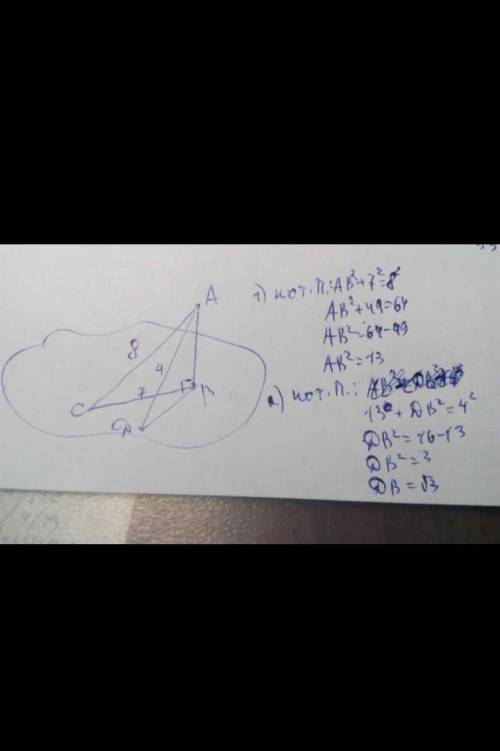 A
8
4
7
C
B
D
1) по т.П.: AB²+7²=8²
AB²+49=64
AB²=64-49
AB²=13
2) по т.П.:
13 + DB²=4²
DB²=16-13
DB²=3
DB=√3